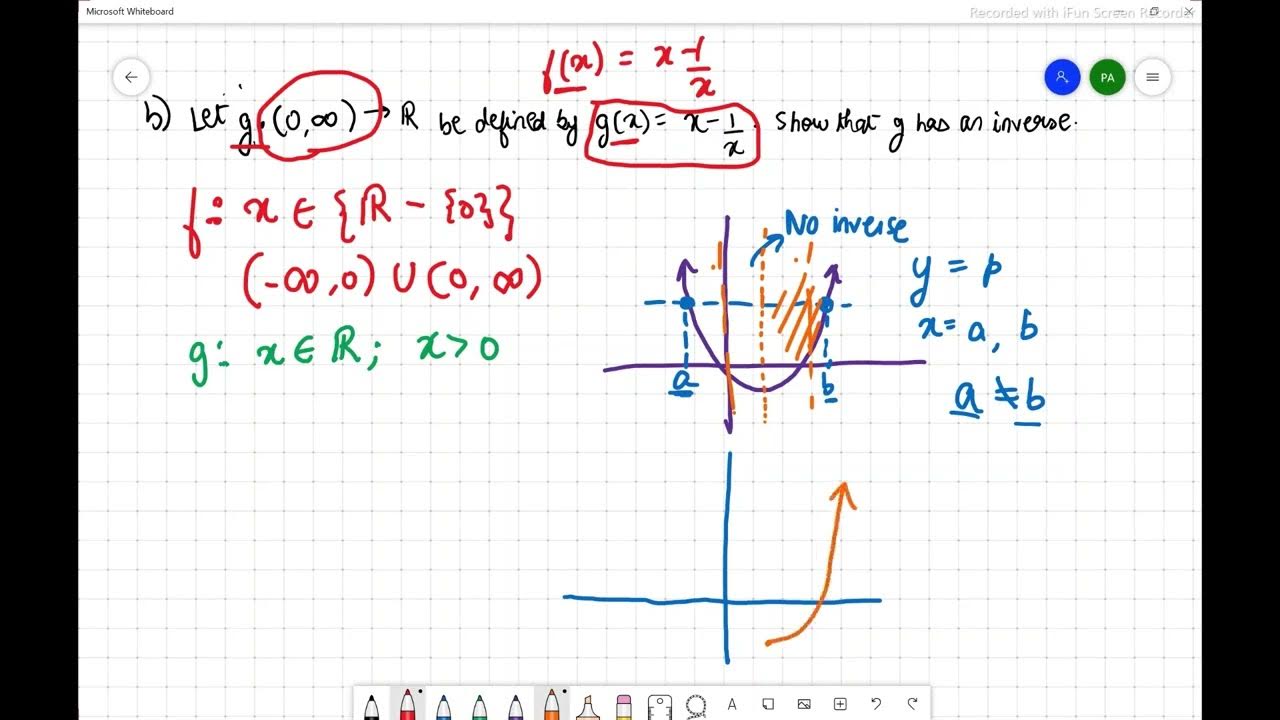 Microsoft Whiteboard
Recorded with iFun Screen Recorder
PA
f(x) = x - 1/x
b) Let g: (0,∞) → ℝ be defined by g(x) = x - 1/x. Show that g has an inverse.
f: x ∈ {ℝ - {0}}
(-∞,0) ∪ (0,∞)
g: x ∈ ℝ; x > 0
No inverse
y = p
x = a, b
a ≠ b
a b
A